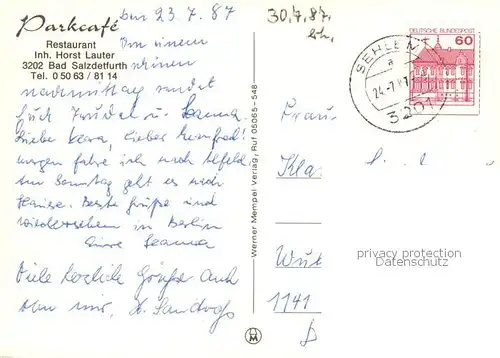 Parkcafé
Restaurant
Inh. Horst Lauter
3202 Bad Salzdetfurth
Tel. 0 50 63 / 81 14
den 23.7.87
30.7.87.
Von einem
schönen
nachmittag sendet
Euch Trudel u.
Liebe Vera, lieber Manfred!
morgen fahre ich nach Alfeld
Am Sonntag geht es nach
Hause. Beste Grüße und
Wiedersehen in Berlin
Eure
Viele herzliche Grüße auch
von mir,
Werner Mempel Verlag, Ruf 05065-548
HM
DEUTSCHE BUNDESPOST
60
SEHLEM
a
24.-7.87
3201
Frau
Kla
Wut
1141
privacy protection
Datenschutz